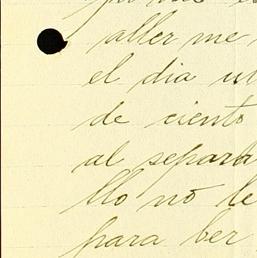 aller me
el dia
de ciento
al separa
llo no le
para ber